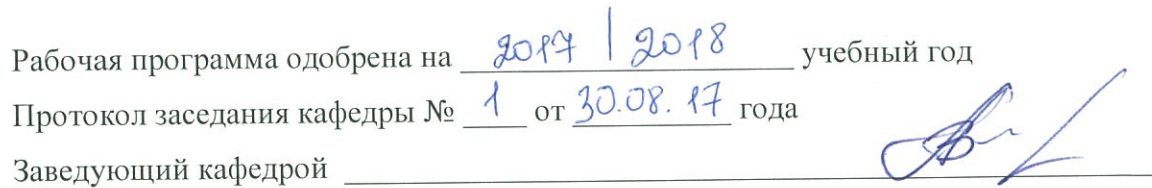 Рабочая программа одобрена на 2017 | 2018 учебный год
Протокол заседания кафедры № 1 от 30.08.17 года
Заведующий кафедрой